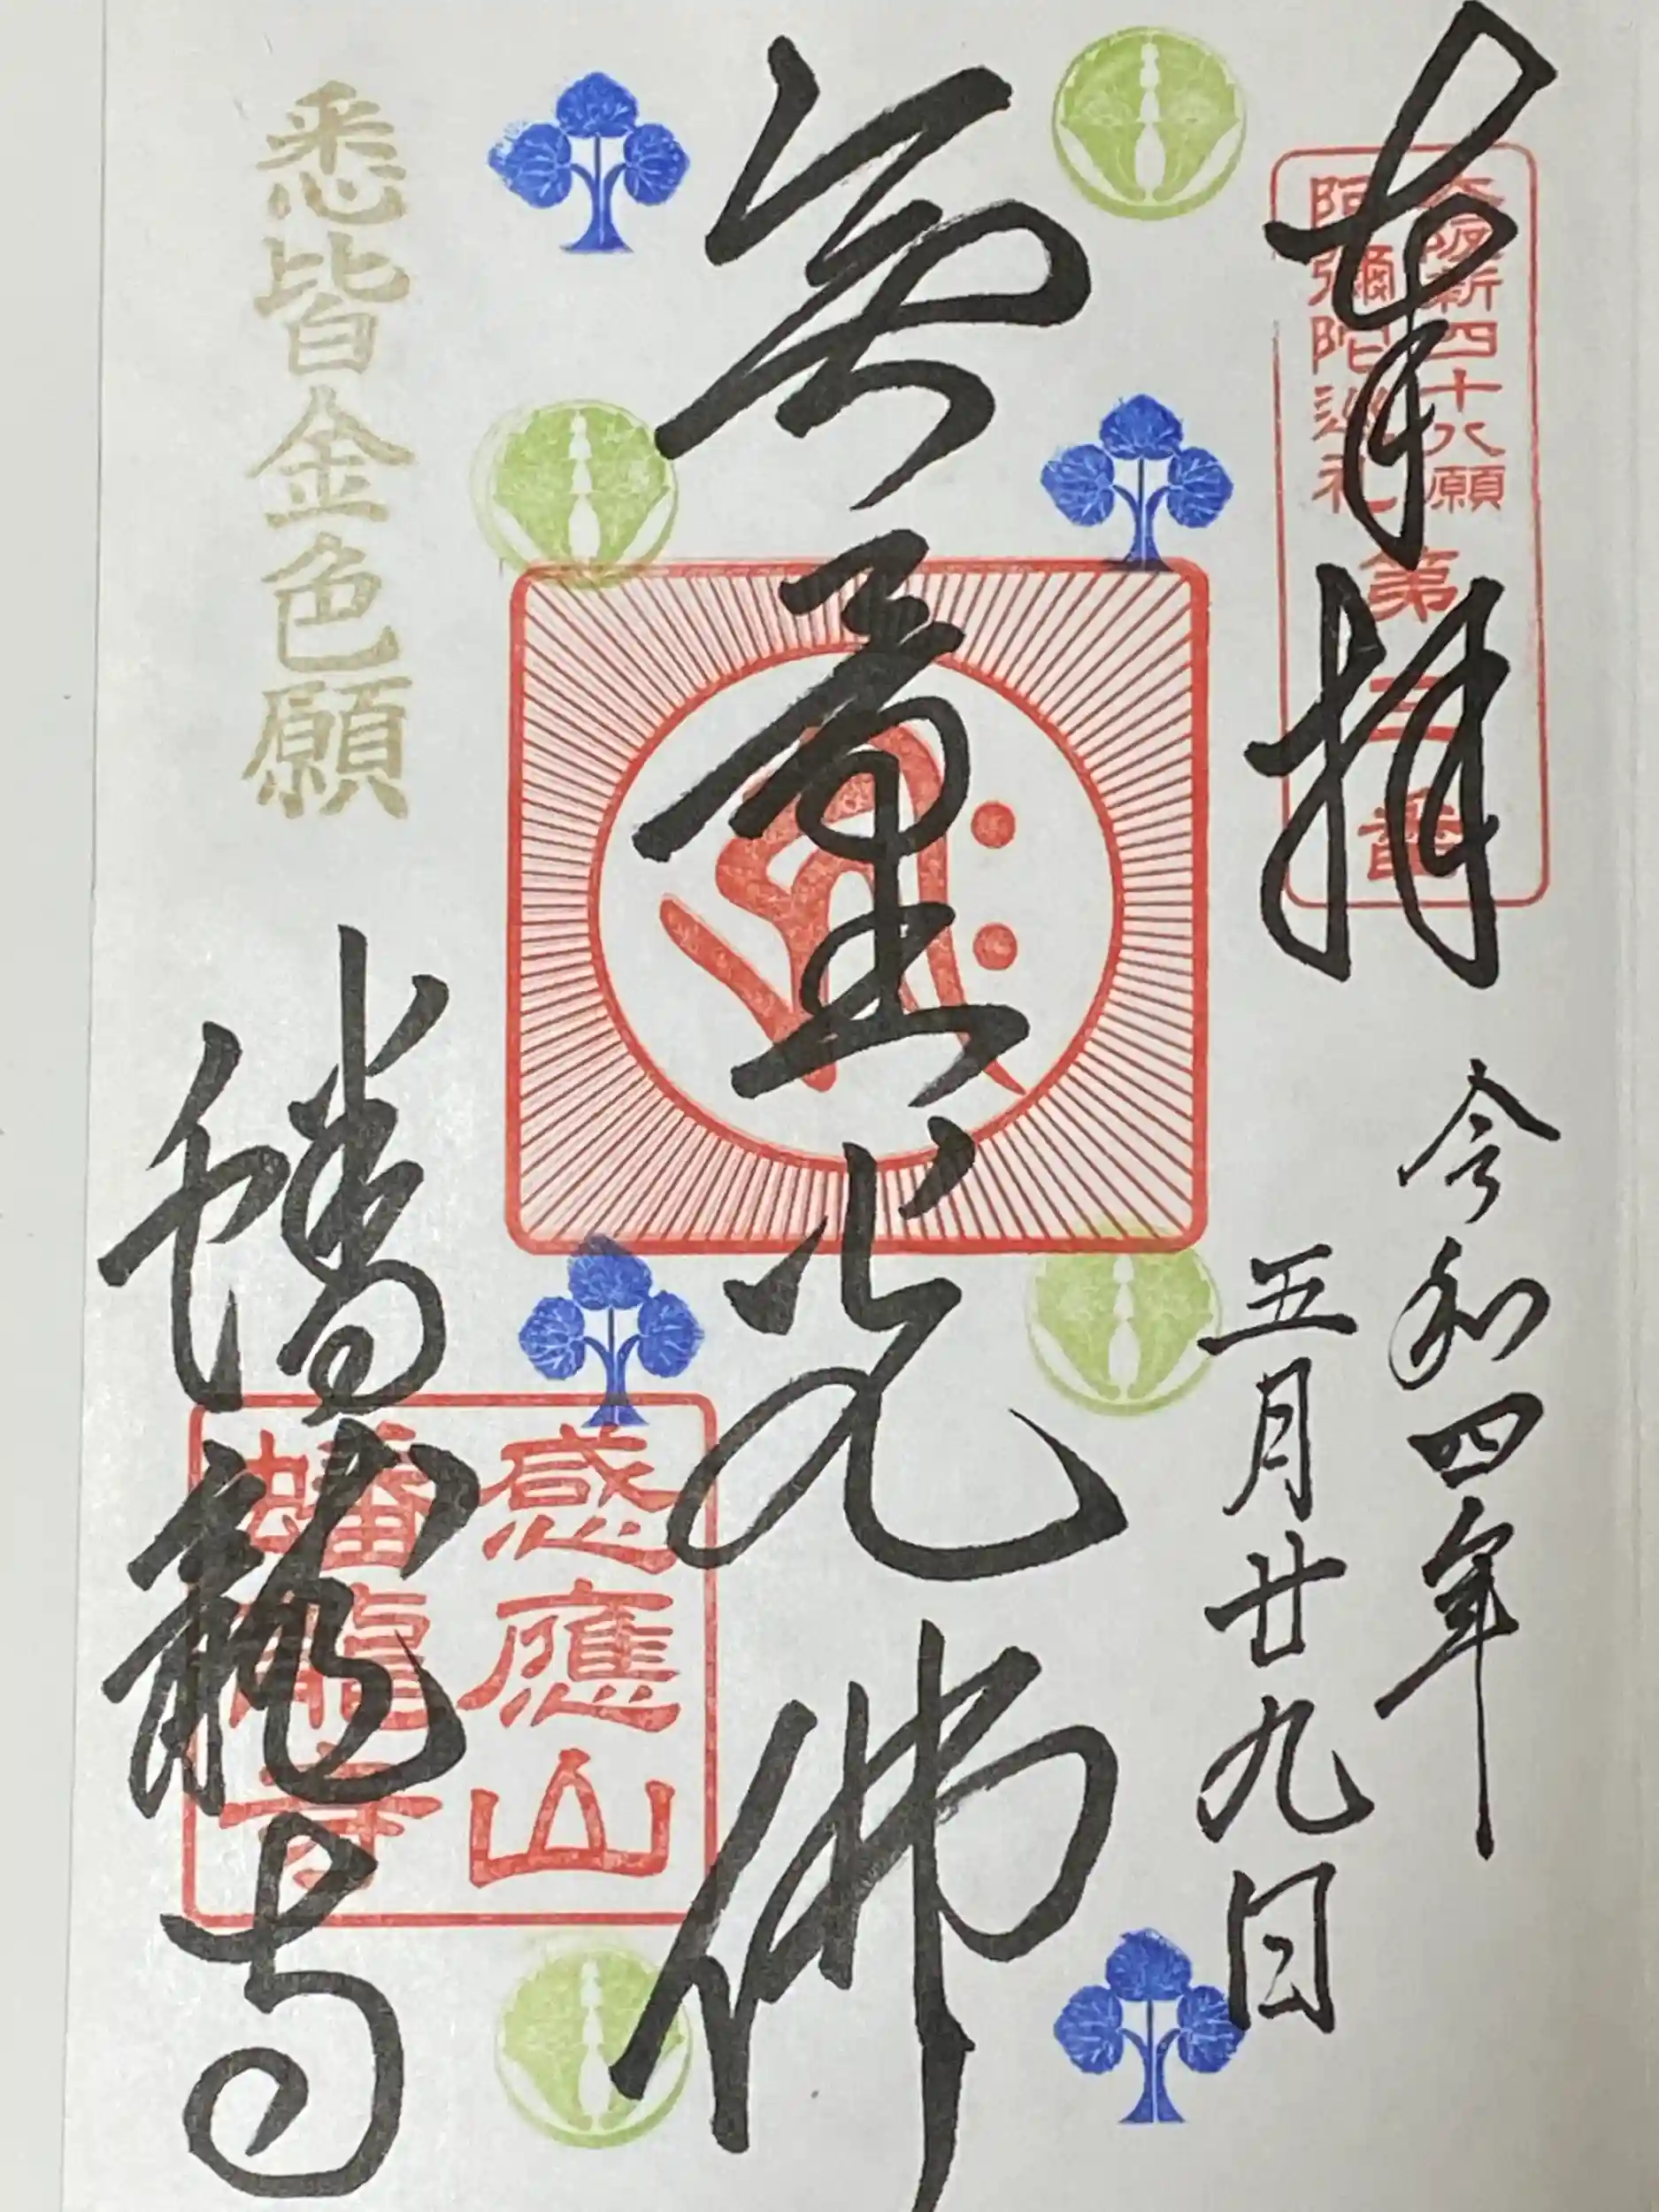 奉拝
大阪新四十八願
阿彌陀巡礼
第三番
令和四年
五月廿九日
無量光佛
悉皆金色願
蟠龍寺
感應山
蟠龍寺